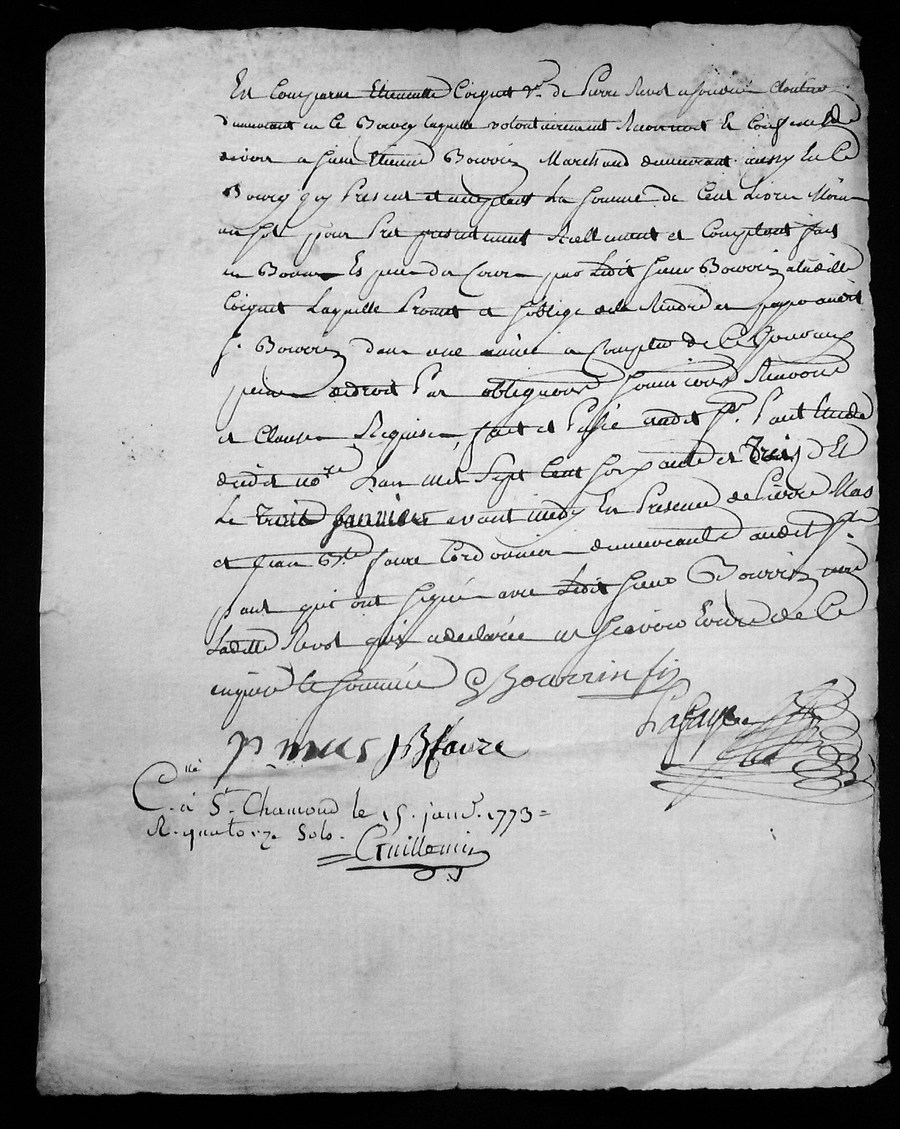 Est Comparue Etiennette Coignet Ve. de Pierre Revol
demeurant en Ce Bourg laquelle volontairement Reconnoit Et Confesse
devoir a sieur Etienne Bourrin Marchand demeurant aussy En Ce
Bourg icy Present et acceptant La Somme de Cent Livre
pour Pret presentement Reellement et Comptant fait
en Bonne Espece du Cour par Ledit Sieur Bourrin a ladite
Coignet Laquelle Promet et Soblige de le Rendre et payer audit
Sr. Bourrin dans une année a Compter de Ce Jour
peine de droit Par obligations Soumissions Renoncé
et Clause Requise, fait et Passé audit St. Paul Etude
dudit nore. L'an mil Sept Cent Soixante et Treize Et
Le Treize Janvier avant midy En Presence de Pierre Mas
et Jean Bte. faure Cordonnier demeurants audit St.
paul qui ont Signé avec Ledit Sieur Bourrin non
Ladite Revol qui a declarée ne Scavoir Ecrire de Ce
enquise et Sommée Bourrin fis
p. mas JB faure
Clle. à St. Chamond le 15. janvr. 1773 =
R. quatorze Sols.
Guillemin